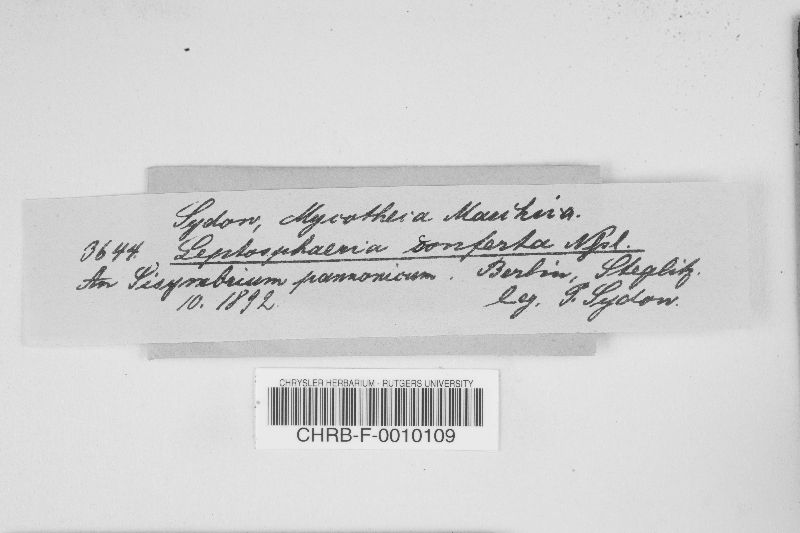 Sydon, Mycotheca Marchica.
3644. Leptosphaeria conferta Nssl.
An Sisymbrium pannonicum. Berlin, Steglitz.
10. 1892. leg. P. Sydow.
CHRYSLER HERBARIUM - RUTGERS UNIVERSITY
CHRB-F-0010109